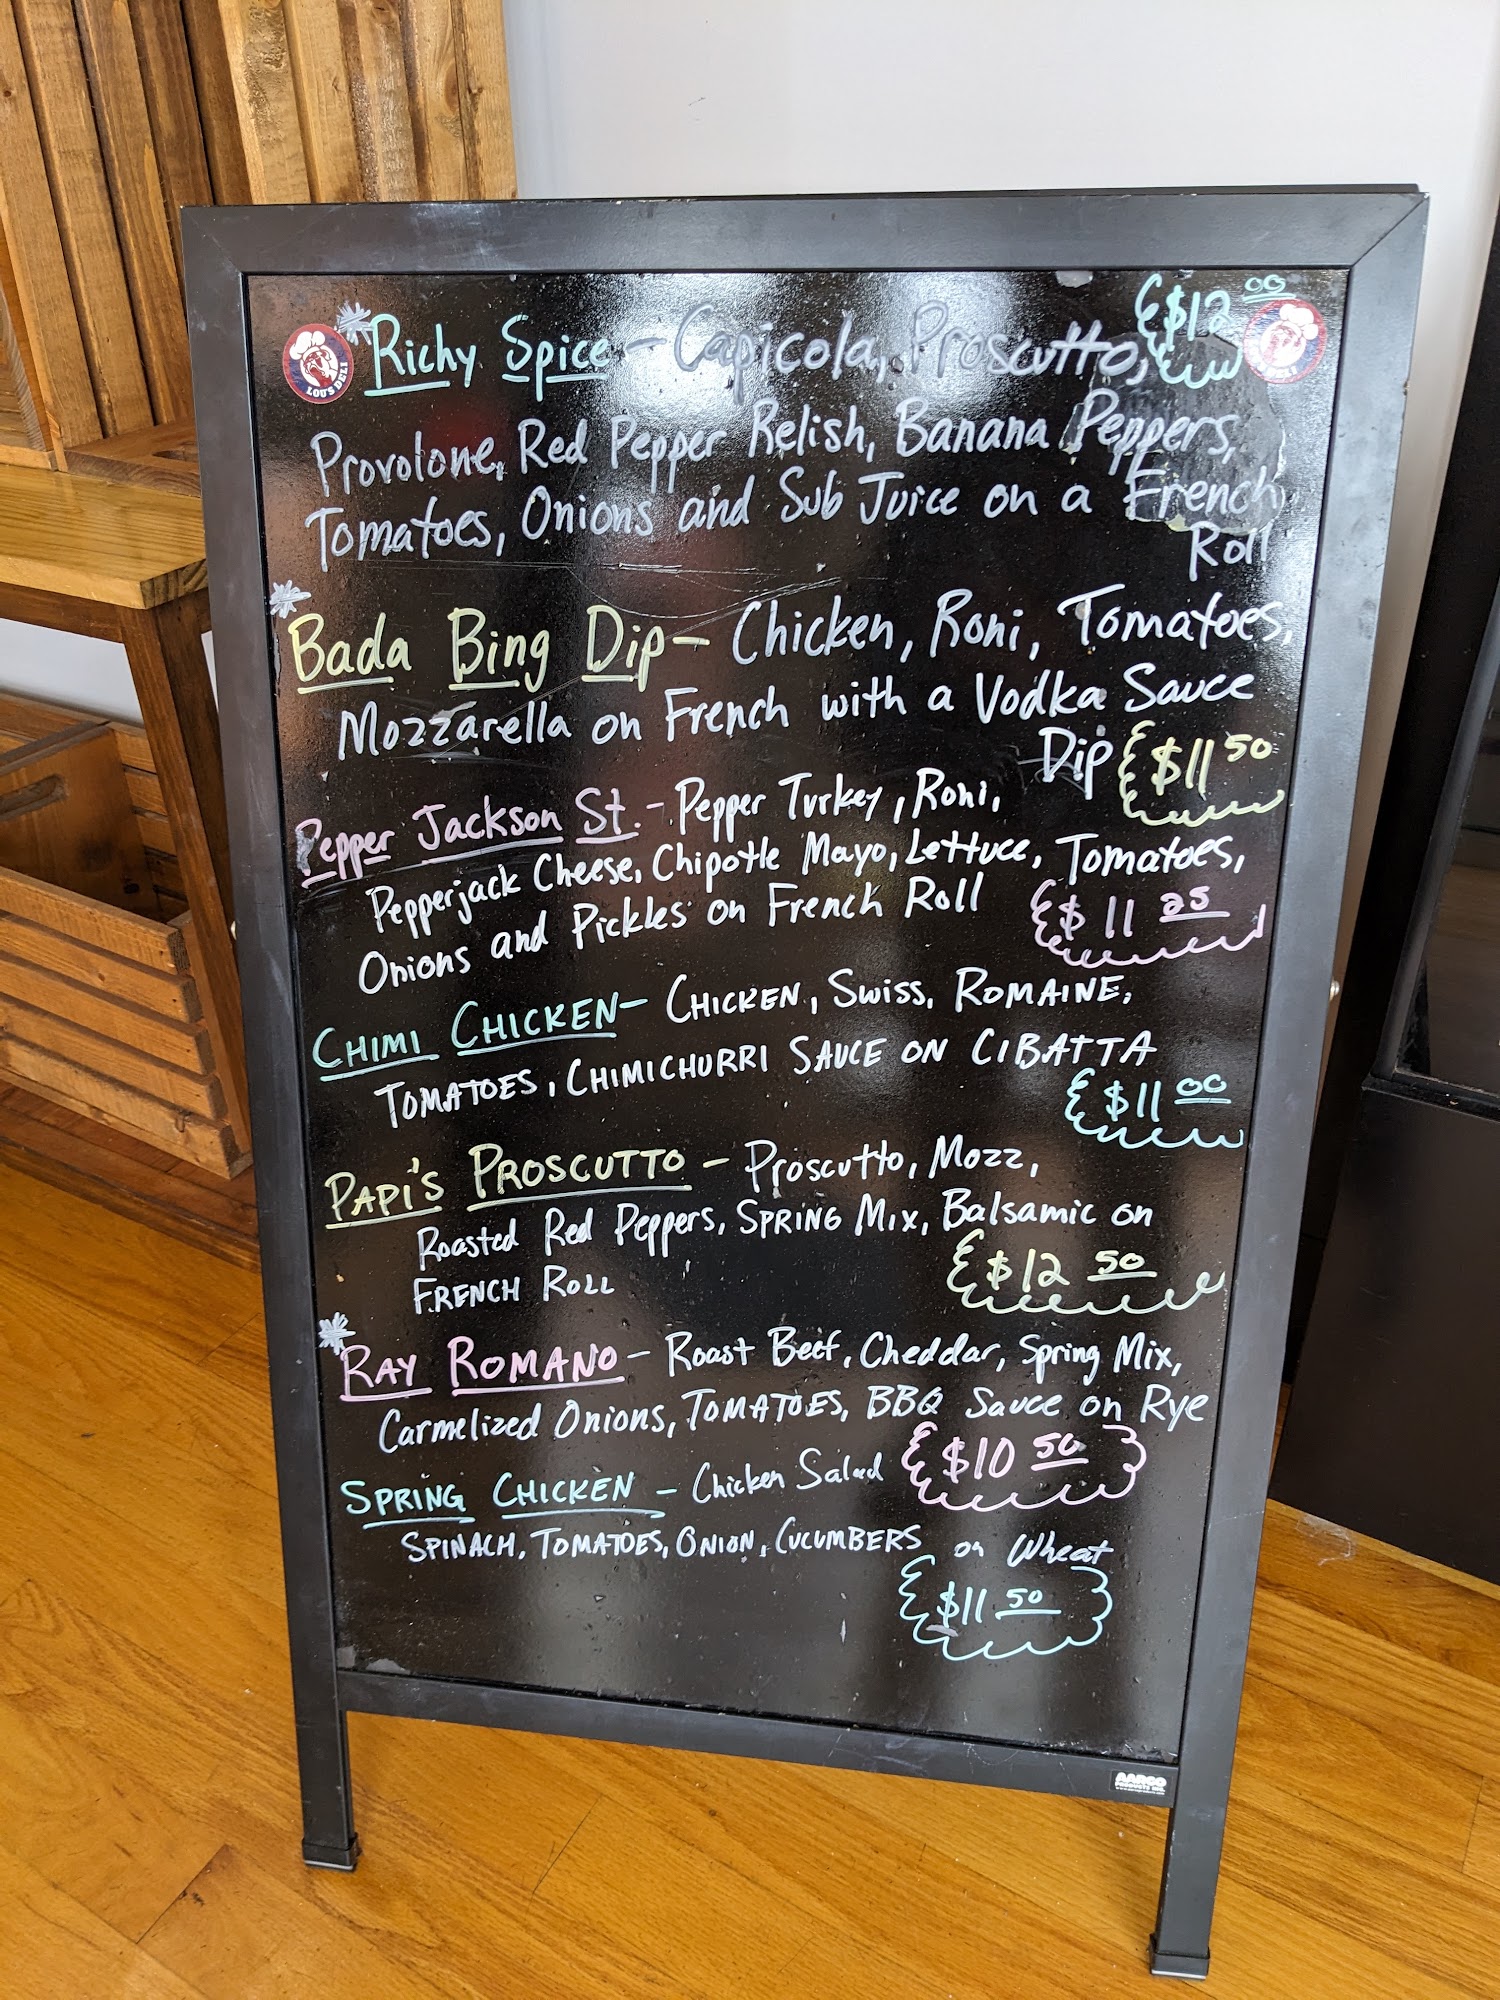 *Richy Spice - Capicola, Proscutto, $12.00
LOU'S DELI
Provolone, Red Pepper Relish, Banana Peppers,
Tomatoes, Onions and Sub Juice on a French
Roll
*Bada Bing Dip - Chicken, Roni, Tomatoes,
Mozzarella on French with a Vodka Sauce
Dip $11 50
Pepper Jackson St. - Pepper Turkey, Roni,
Pepperjack Cheese, Chipotle Mayo, Lettuce, Tomatoes,
Onions and Pickles on French Roll $11 25
CHIMI CHICKEN - CHICKEN, SWISS, ROMAINE,
TOMATOES, CHIMICHURRI SAUCE ON CIBATTA
$11 00
PAPI'S PROSCUTTO - Proscutto, Mozz,
Roasted Red Peppers, SPRING MIX, Balsamic on
FRENCH ROLL $12 50
*RAY ROMANO - Roast Beef, Cheddar, Spring Mix,
Carmelized Onions, TOMATOES, BBQ Sauce on Rye
$10 50
SPRING CHICKEN - Chicken Salad
SPINACH, TOMATOES, ONION, CUCUMBERS on Wheat
$11 50
AARCO
PRODUCTS INC.